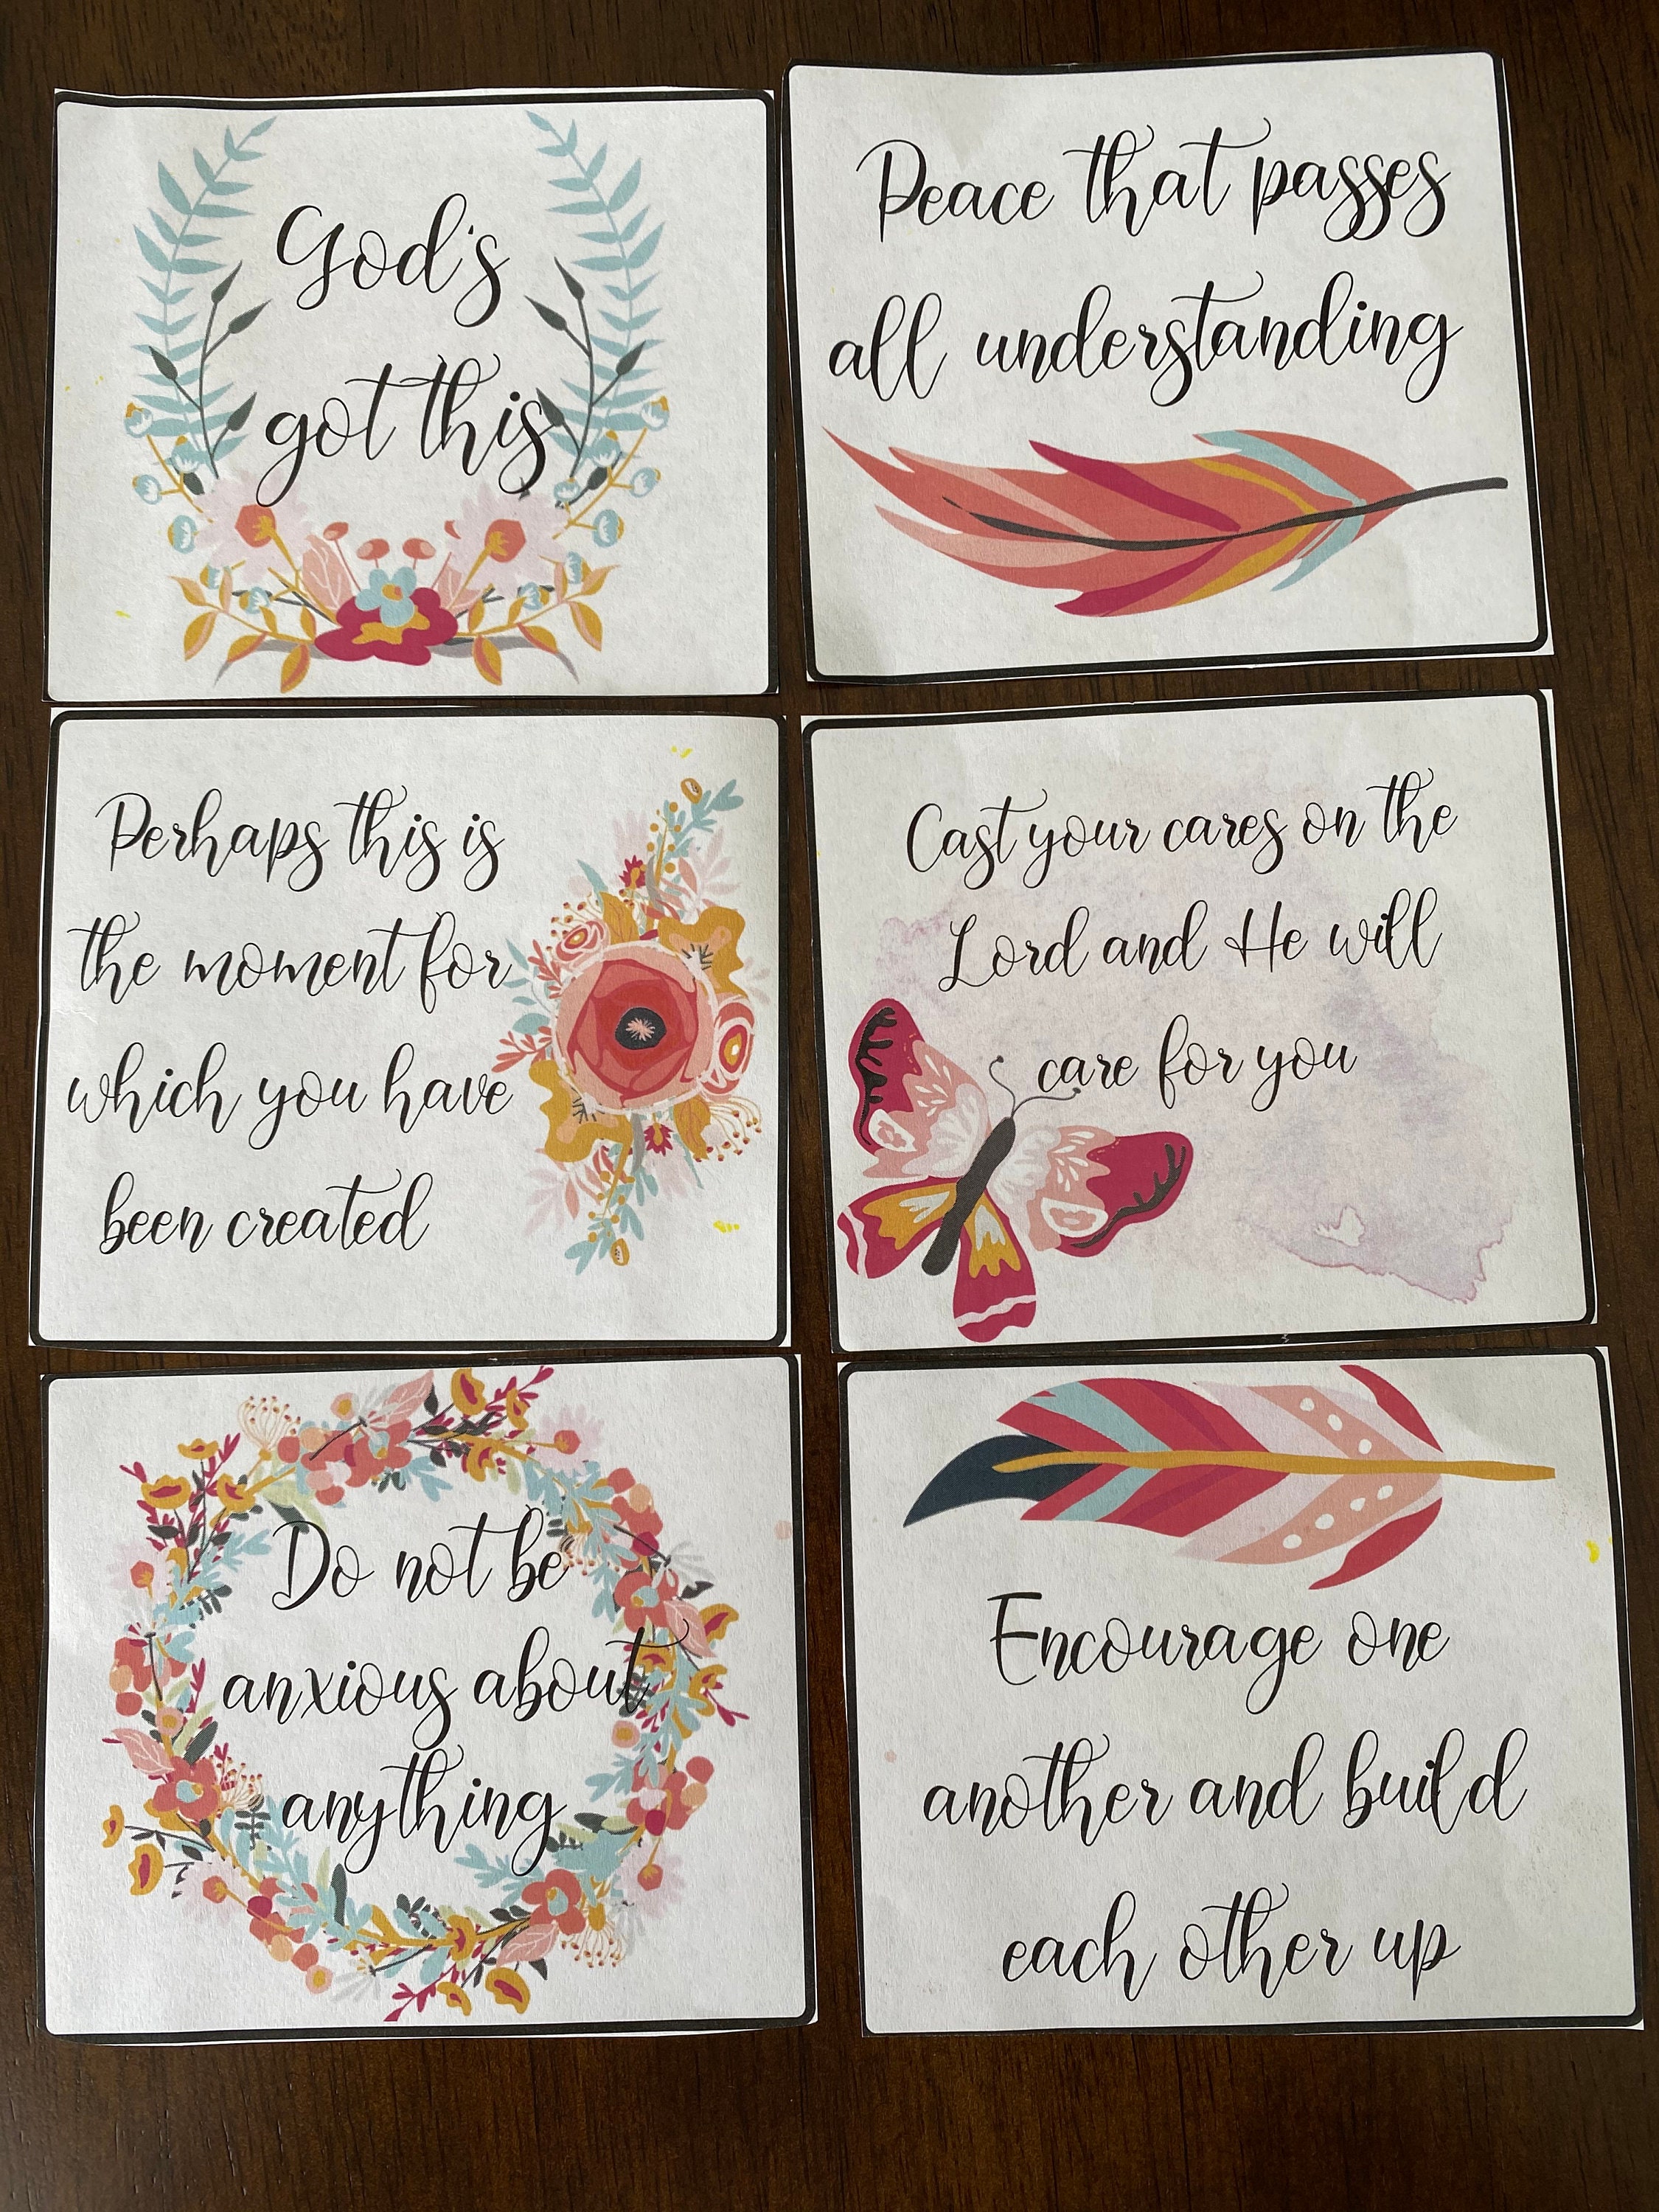 God's
got this
Peace that passes
all understanding
Perhaps this is
the moment for
which you have
been created
Cast your cares on the
Lord and He will
care for you
Do not be
anxious about
anything
Encourage one
another and build
each other up